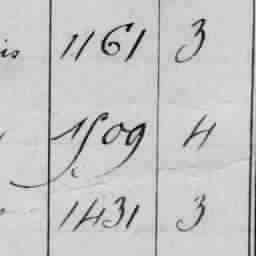 is 1161 3
1509 4
1431 3